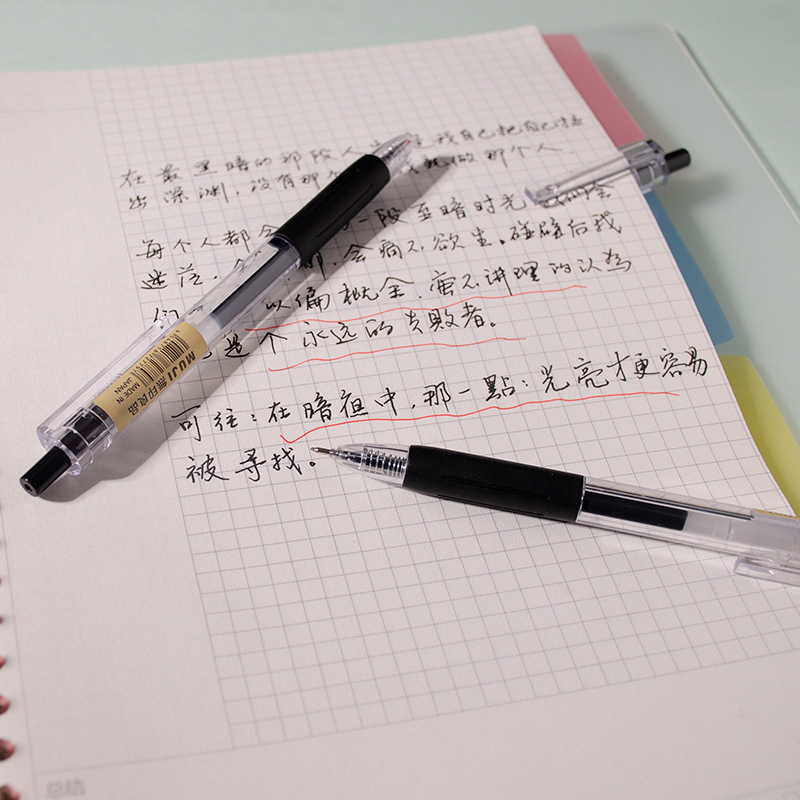 在最黑暗的那段人生 是我自己把自己拉
出深渊,没有那个 做那个人
每个人都会 一段至暗时光
迷茫, 会痛不欲生。碰壁后我
们 以偏概全,蛮不讲理的认为
是个永远的失败者。
可往:在暗夜中,那一點:光亮才更容易
被寻找。
MUJI 無印良品
MADE IN JAPAN
总结